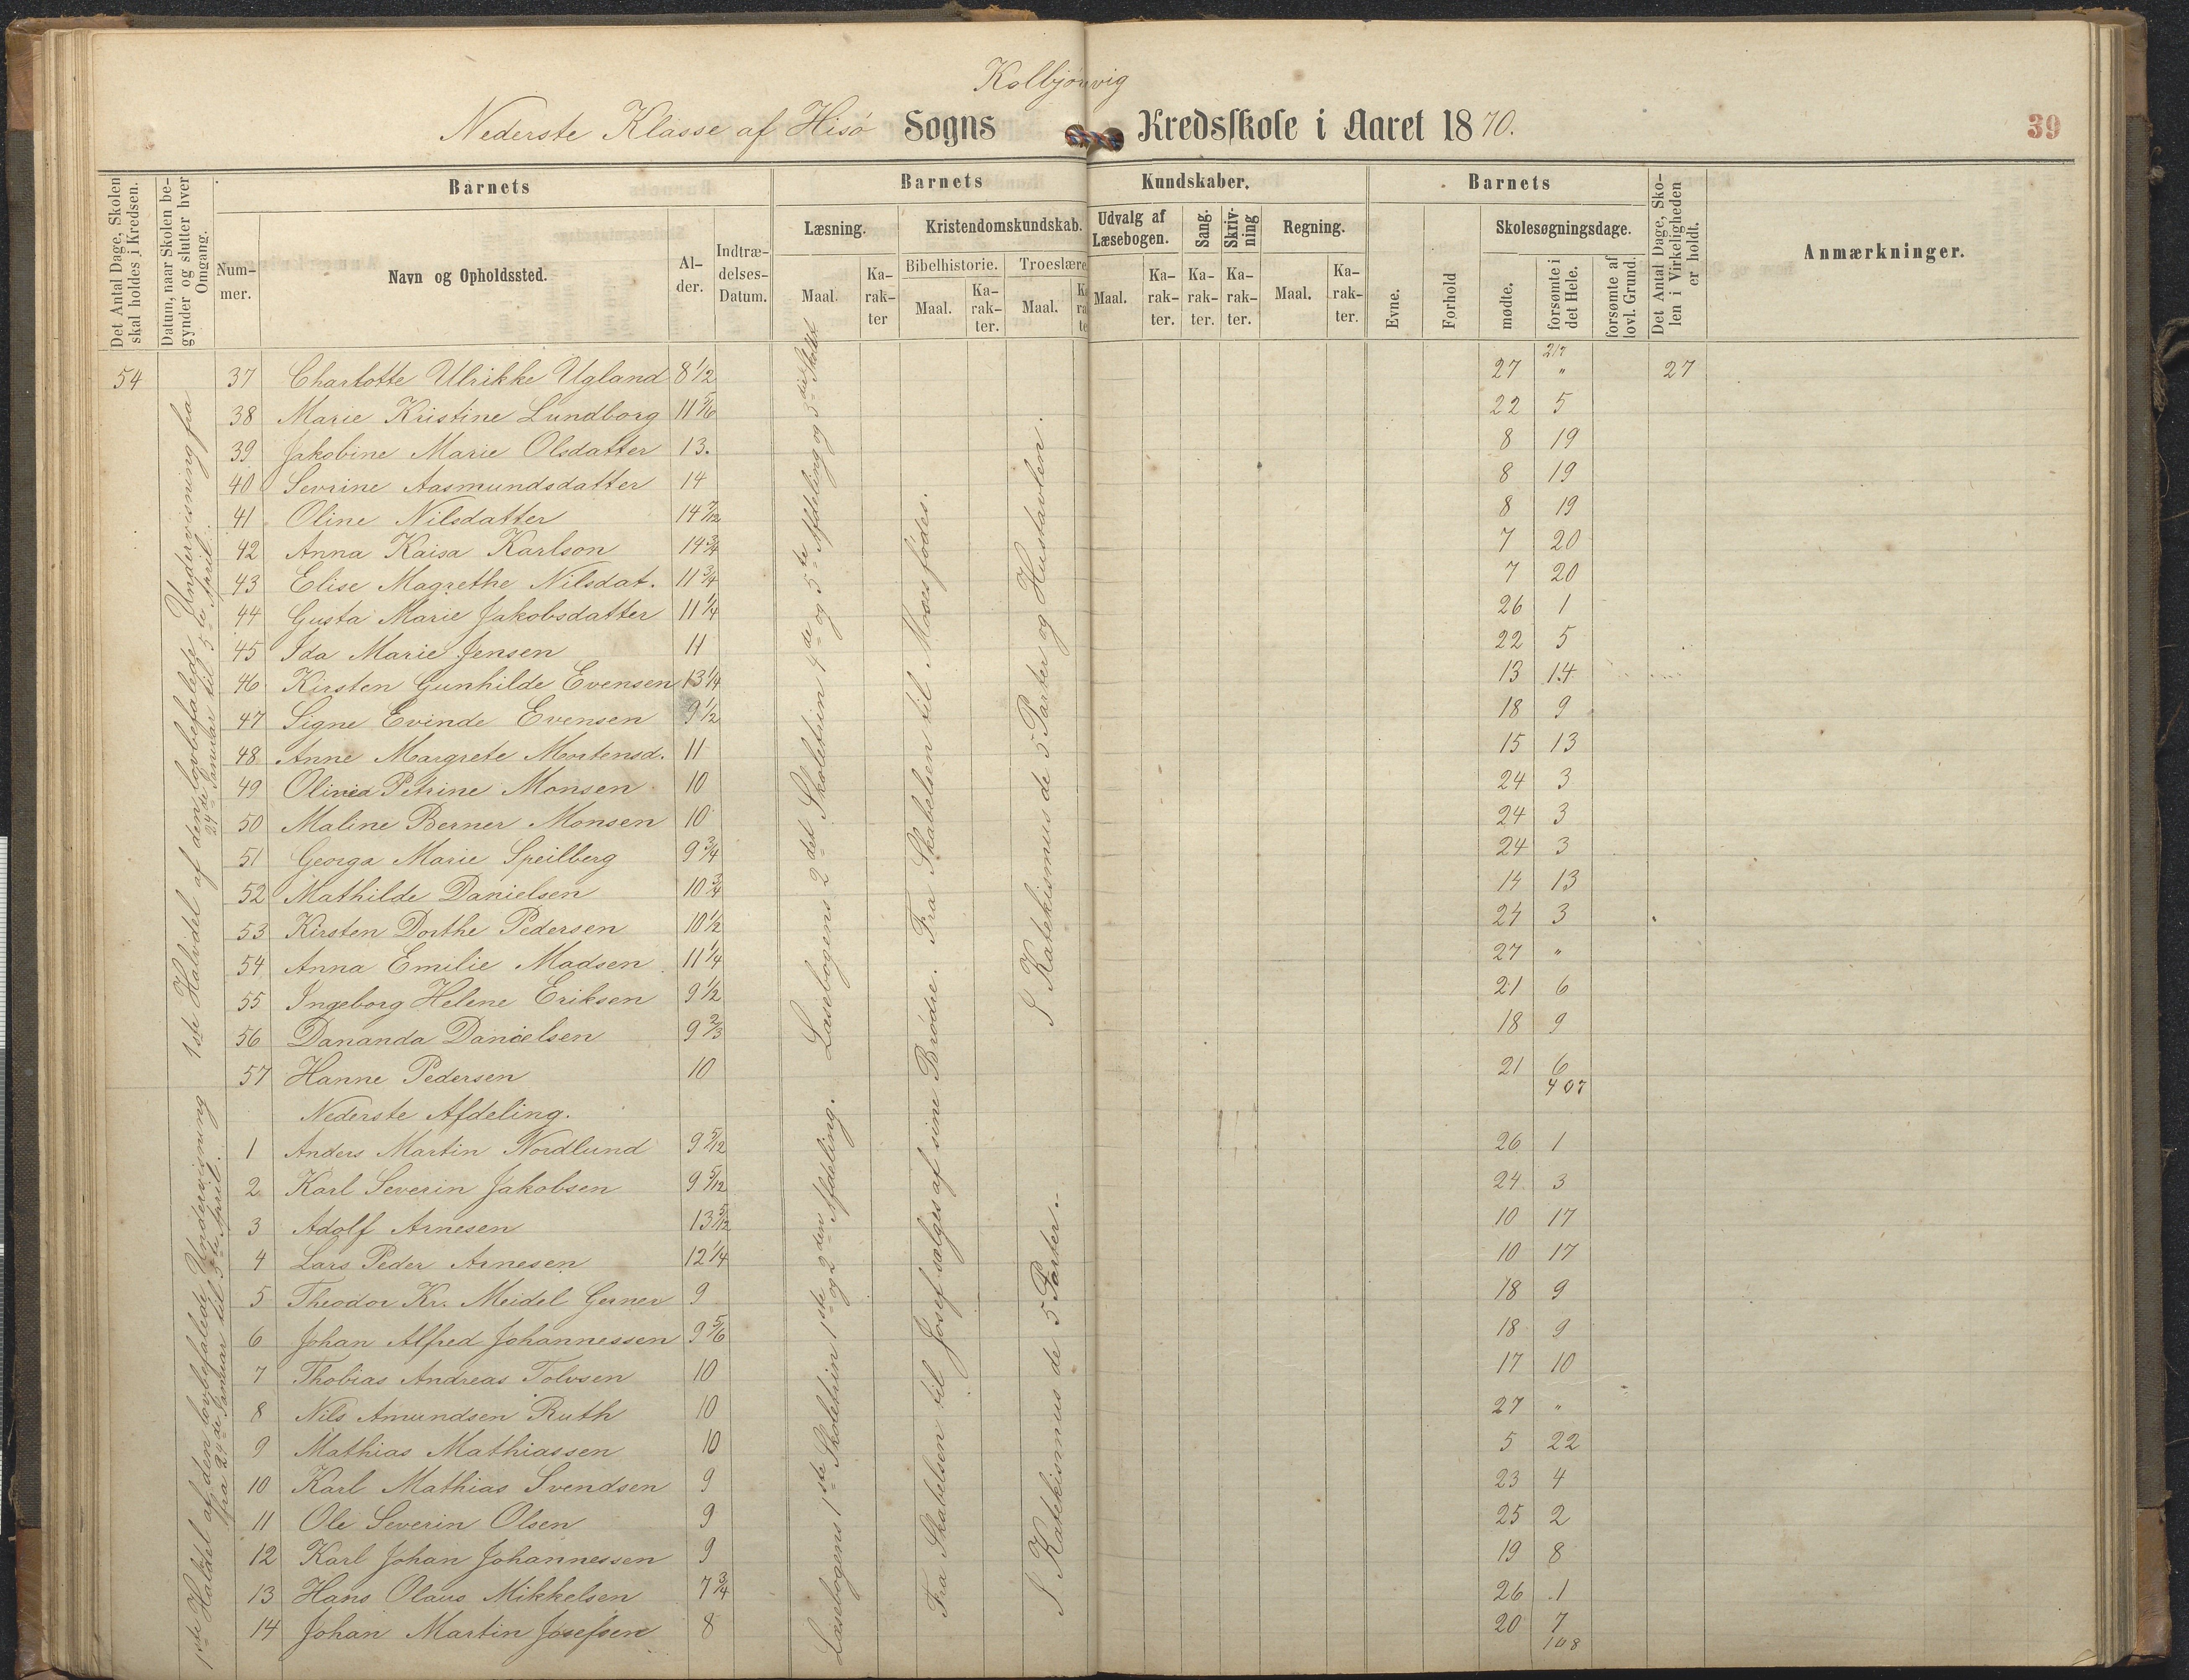 Kolbjønvig
Nederste Klasse af Hisø Sogns Kredsskole i Aaret 1870.
39
Det Antal Dage, Skolen skal holdes i Kredsen.
Datum, naar Skolen begynder og slutter hver Omgang.
Barnets
Barnets Kundskaber.
Barnets
Nummer.
Navn og Opholdssted.
Alder.
Indtrædelses-Datum.
Læsning.
Kristendomskundskab.
Udvalg af Læsebogen.
Sang.
Skrivning
Regning.
Evne.
Forhold
Skolesøgningsdage.
Det Antal Dage, Skolen i Virkeligheden er holdt.
Anmærkninger.
Bibelhistorie.
Troeslære
Maal.
Karakter
Maal.
Karakter.
Maal.
Maal.
Karakter.
Karakter.
Karakter.
Maal.
Karakter.
mødte.
forsømte i det Hele.
forsømte af lovl. Grund.
1ste Halvdel af den lovbefalede Undervisning fra
24de Januar til 5te April.
Læsebogens 2det Skoletrin 4de og 5te Afdeling og 3die Skolet
Fra Skabelsen til Moses fødes.
I Katekismus de 5 Parter og Hustavlen.
217
54 37 Charlotte Ulrikke Ugland 8 1/2 27 " 27
38 Marie Kristine Lundborg 11 5/6 22 5
39 Jakobine Marie Olsdatter 13. 8 19
40 Sevrine Aasmundsdatter 14 8 19
41 Oline Nilsdatter 14 7/12 8 19
42 Anna Kaisa Karlson 14 3/4 7 20
43 Elise Magrethe Nilsdat. 11 3/4 7 20
44 Gusta Marie Jakobsdatter 11 1/4 26 1
45 Ida Marie Jensen 11 22 5
46 Kirsten Gunhilde Evensen 13 1/4 13 14
47 Signe Evinde Evensen 9 1/2 18 9
48 Anne Margrete Mortensd. 11 15 13
49 Olivea Petrine Monsen 10 24 3
50 Maline Berner Monsen 10 24 3
51 Georga Marie Speilberg 9 3/4 24 3
52 Mathilde Danielsen 10 3/4 14 13
53 Kirsten Dorthe Pedersen 10 1/2 24 3
54 Anna Emilie Madsen 11 1/4 27 "
55 Ingeborg Helene Eriksen 9 1/2 21 6
56 Dananda Danielsen 9 2/3 18 9
57 Hanne Pedersen 10 21 6
407
Nederste Afdeling.
1ste Haldel af den lovbefalede Undervisning
fra 24de Januar til 5te April.
Læsebogens 1ste Skoletrin 1ste og 2den Afdeling.
Fra Skabelsen til Josef sælges af sine Brødre.
I Katekismus de 5 Parter.
1 Anders Martin Nordlund 9 5/12 26 1
2 Karl Severin Jakobsen 9 5/12 24 3
3 Adolf Arnesen 13 5/12 10 17
4 Lars Peder Arnesen 12 1/4 10 17
5 Theodor Kr. Meidel Gerner 9 18 9
6 Johan Alfred Johannessen 9 5/6 18 9
7 Thobias Andreas Tolvsen 10 17 10
8 Nils Amundsen Ruth 10 27 "
9 Mathias Mathiassen 10 5 22
10 Karl Mathias Svendsen 9 23 4
11 Ole Severin Olsen 9 25 2
12 Karl Johan Johannessen 9 19 8
13 Hans Olaus Mikkelsen 7 3/4 26 1
14 Johan Martin Josefsen 8 20 7
108